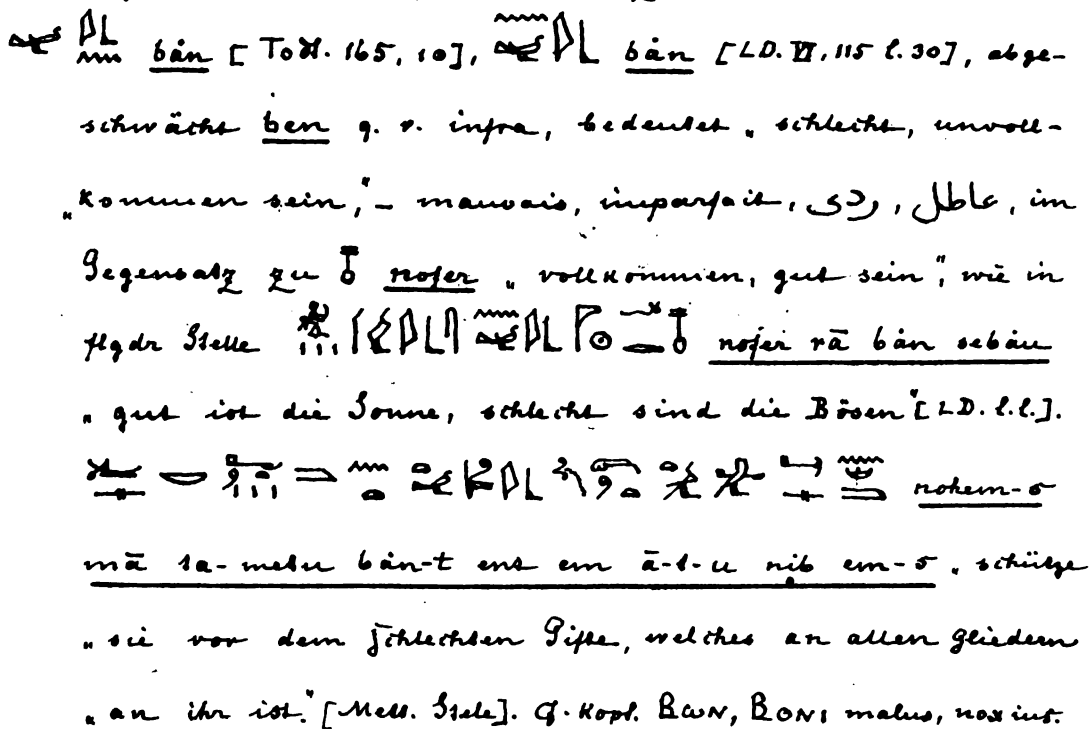 bȧn [Todt. 165, 10], bȧn [LD. VI, 115 l. 30], abge-
schwächt ben q. v. infra, bedeutet „schlecht, unvoll-
„kommen sein,“ – mauvais, imparfait, ردى, عاطل, im
Gegensatz zu nofer „vollkommen, gut sein“, wie in
flgdr Stelle nofer rā bȧn sebȧu
„gut ist die Sonne, schlecht sind die Bösen“ [LD. l. l.].
nohem-s
mā ta-metu bȧn-t ent em ā-t-u nib em-s „schütze
„sie vor dem schlechten Gifte, welches an allen Gliedern
„an ihr ist.“ [Mett. Stele]. Cf. Kopt. ⲂⲰⲚ, ⲂⲞⲚⲒ malus, noxius.